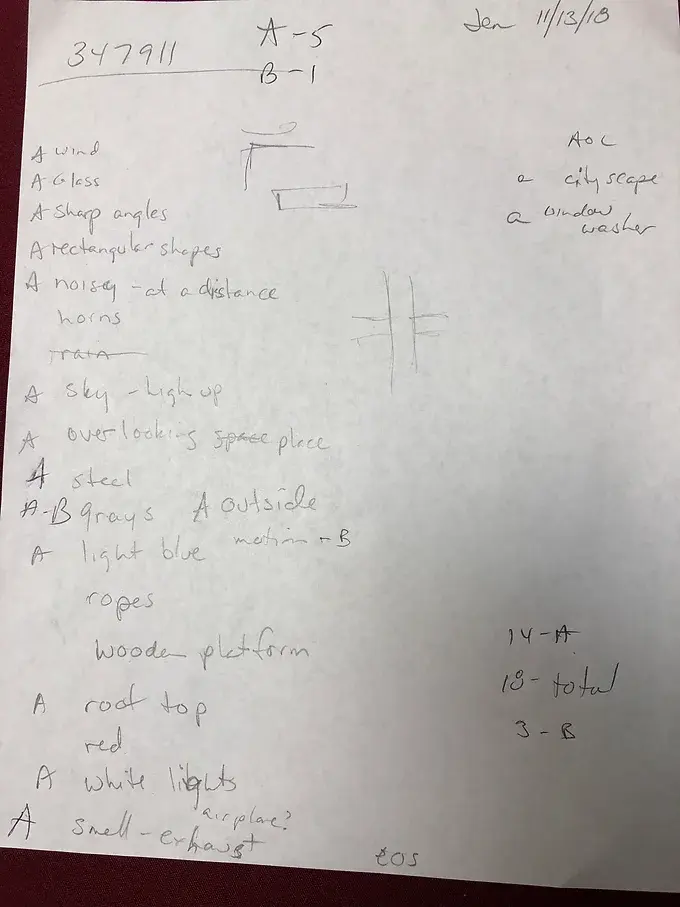 Jen 11/13/18
347911
A-5
B-1
AOC
a cityscape
a window
washer
A wind
A Glass
A Sharp angles
A rectangular shapes
A noisey - at a distance
horns
train
A sky - high up
A overlooking space place
A steel
A-B grays A outside
motion - B
A light blue
ropes
wooden platform
A roof top
red
A white lights
airplane?
A smell - exhaust
14-A
18-total
3-B
EOS